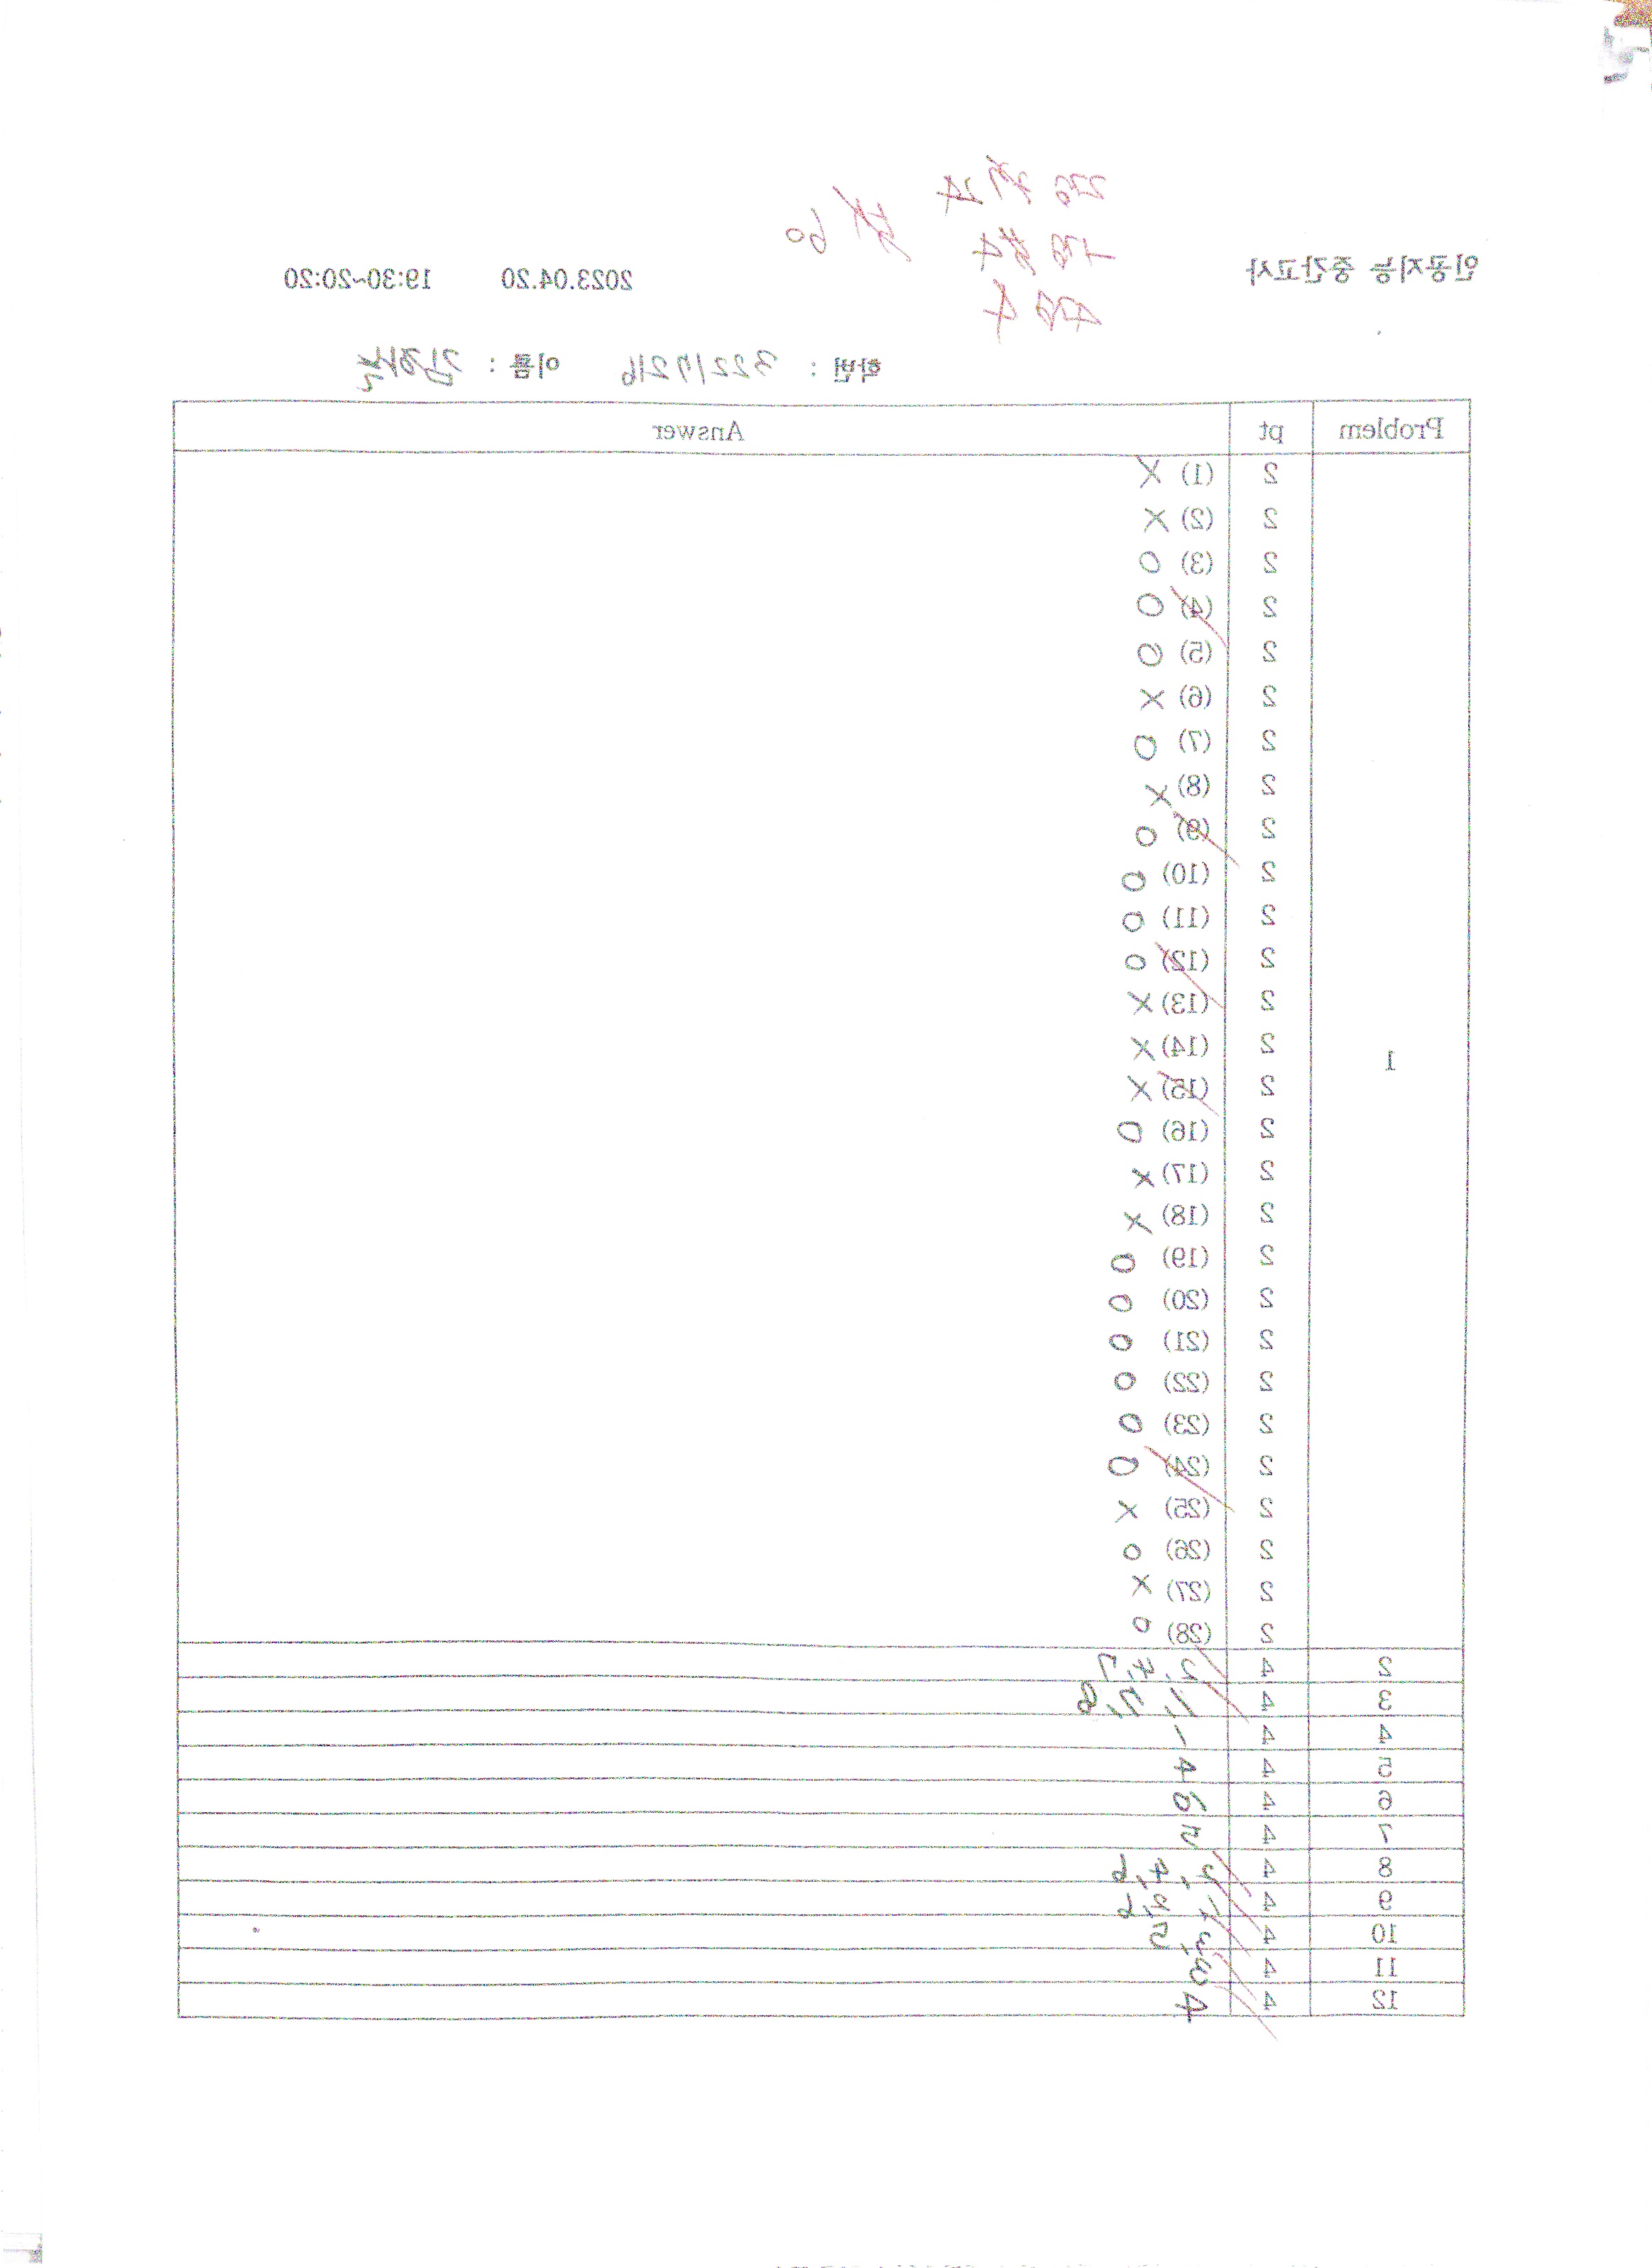 인공지능 중간고사 2023.04.20 19:30~20:20
60
학번 : 32217216 이름 :
Problem pt Answer
1
2 (1) X
2 (2) X
2 (3) O
2 (4) O
2 (5) O
2 (6) X
2 (7) O
2 (8) X
2 (9) O
2 (10) O
2 (11) O
2 (12) O
2 (13) X
2 (14) X
2 (15) X
2 (16) O
2 (17) X
2 (18) X
2 (19) O
2 (20) O
2 (21) O
2 (22) O
2 (23) O
2 (24) O
2 (25) X
2 (26) O
2 (27) X
2 (28) O
2 4 2, 4, 7
3 4 1, 5, 8
4 4 1
5 4 4
6 4 6
7 4 5
8 4 2, 4, 6
9 4
10 4 3, 5
11 4
12 4 4